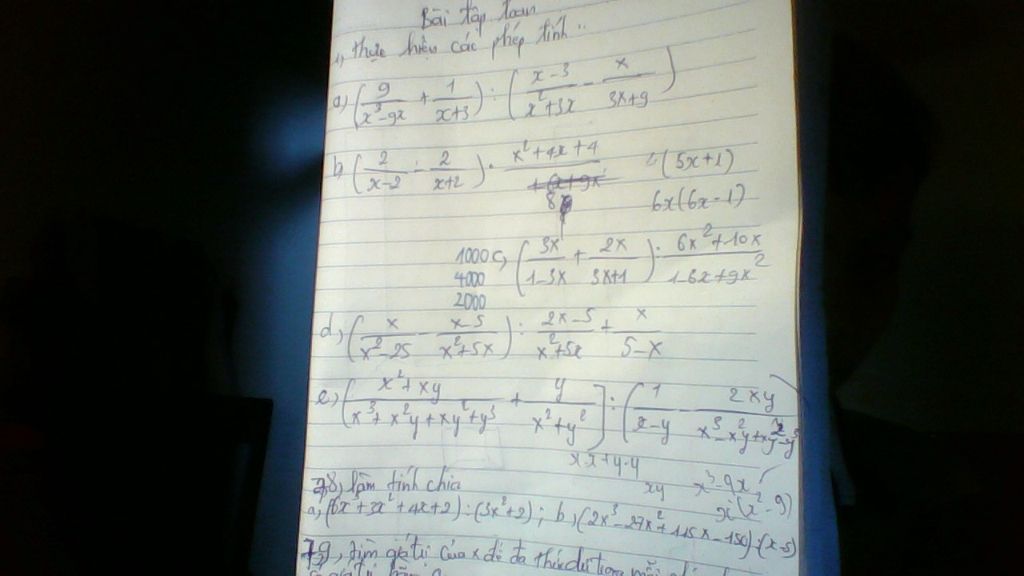 Bài tập toán
1, thực hiện các phép tính :
a) (9/(x³-9x) + 1/(x+3)) : ((x-3)/(x²+3x) - x/(3x+9))
b, (2/(x-2) - 2/(x+2)) · (x²+4x+4)/8
(5x+1)
6x(6x-1)
1000 c, (3x/(1-3x) + 2x/(3x+1)) : (6x²+10x)/(1-6x+9x²)
4000
2000
d, (x/(x²-25) - (x-5)/(x²+5x)) : (2x-5)/(x²+5x) + x/(5-x)
e, ((x²+xy)/(x³+x²y+xy²+y³) + y/(x²+y²)) : (1/(x-y) - 2xy/(x³-x²y+xy²-y³))
x.x+y.y
xy
x³-9x
x(x²-9)
78, Làm tính chia
a, (6x³+3x²+4x+2):(3x²+2) ; b, (2x³-27x²+115x-150):(x-5)
79, tìm giá trị của x để đa thức dư trong mỗi